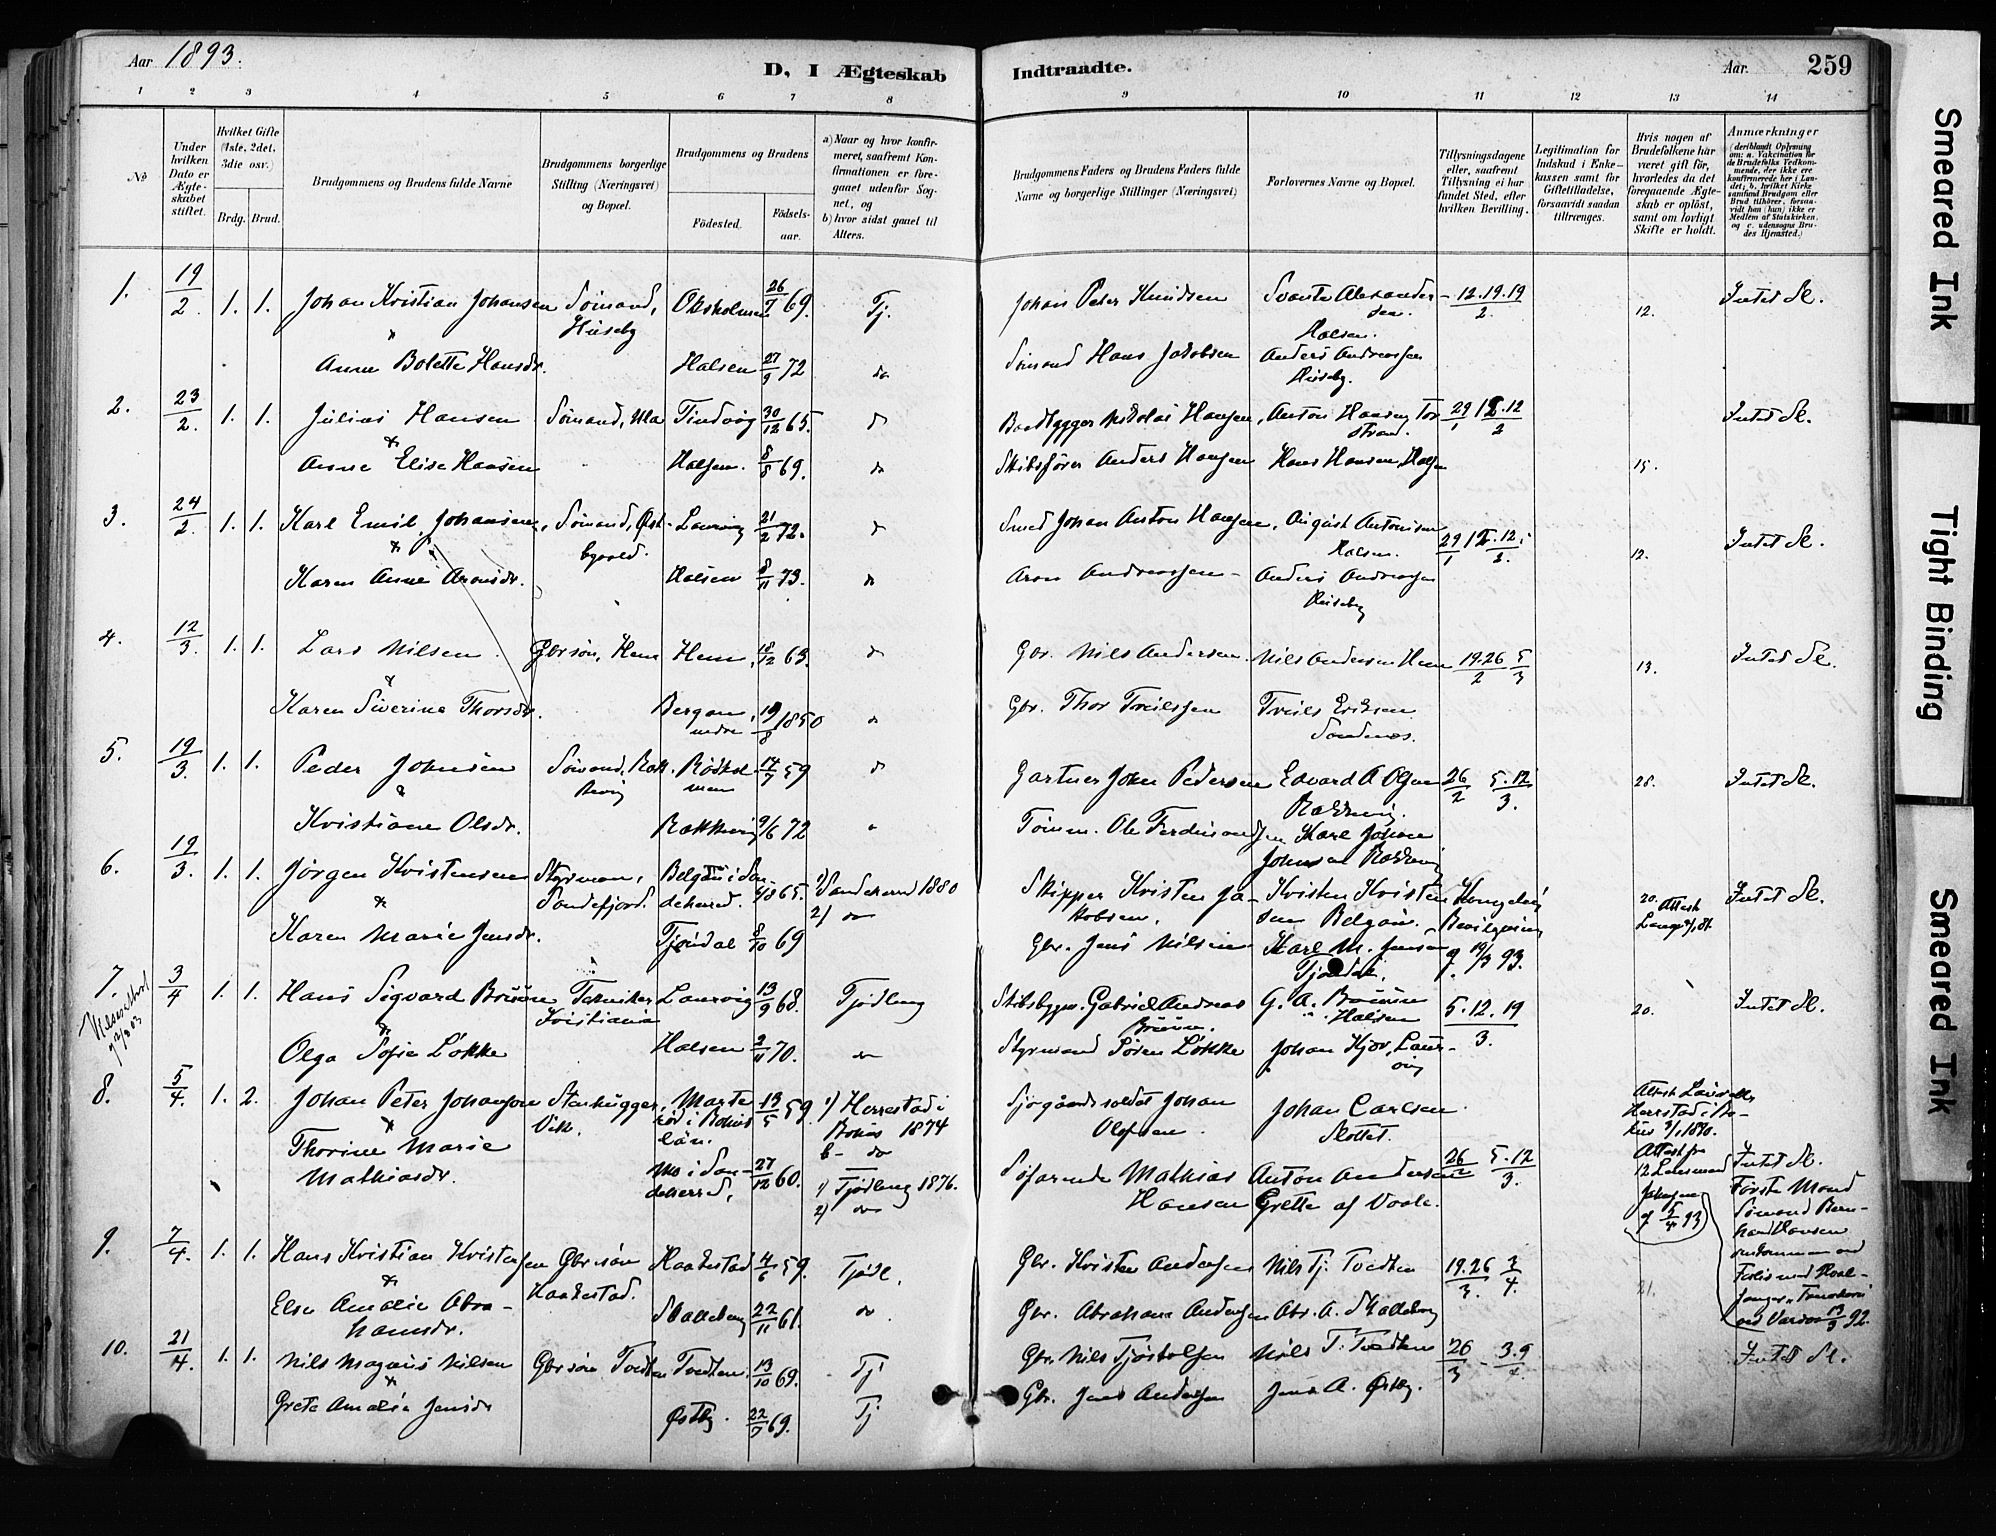 Aar 1893.
D, I Ægteskab Indtraadte.
Aar. 259
1 2 3 4 5 6 7 8 9 10 11 12 13 14
No
Under hvilken Dato er Ægteskabet stiftet.
Hvilket Gifte (1ste, 2det, 3die osv.)
Brdg. Brud.
Brudgommens og Brudens fulde Navne
Brudgommens borgerlige Stilling (Næringsvei) og Bopæl.
Brudgommens og Brudens
Fødested. Fødselsaar.
a) Naar og hvor konfirmeret, saafremt Konfirmationen er foregaaet udenfor Sognet, og
b) hvor sidst gaaet til Alters.
Brudgommens Faders og Brudens Faders fulde Navne og borgerlige Stillinger (Næringsvei)
Forlovernes Navne og Bopæl.
Tillysningsdagene eller, saafremt Tillysning ei har fundet Sted, efter hvilken Bevilling.
Legitimation for Indskud i Enkekassen samt for Giftetilladelse, forsaavidt saadan tiltrænges.
Hvis nogen af Brudefolkene har været gift før, hvorledes da det foregaaende Ægteskab er opløst, samt om lovligt Skifte er holdt.
Anmærkninger (deriblandt Oplysning om: a. Vakcination for de Brudefolks Vedkommende, der ikke ere konfirmerede her i Landet; b. hvilket Kirkesamfund Brudgom eller Brud tilhører, forsaavidt han (hun) ikke er Medlem af Statskirken, og c. udensogns Brudes Hjemsted.)
1. 19/2 1. 1. Johan Kristian Johansen Sömand, Huseby Oksholmen 26/1 69. Tj. Johan Peter Knudsen Svante Alexandersen. Halsen. 12.19.19/2 12. Intet Sk.
Anne Bolette Hansdr. Halsen 27/9 72 do Sömand Hans Jakobsen Anders Andreassen Huseby.
2. 23/2. 1. 1. Julius Hansen Sömand, Ula Tindvig 30/12 65. do Baadbygger Nikolai Hansen, Anton Hansen Torstrand. 29/1 12/2 Intet Sk.
Anne Elise Hansen Halsen. 8/8 69. do Skibsfører Anders Hansen Hans Hansen, Halsen 15.
3. 24/2. 1. 1. Karl Emil Johansen, Sömand, Østbyvold. Laurvig 21/2 72. do Smed Johan Anton Hansen, August Antonisen Halsen. 29/1 12/2. 12. Intet Sk.
Karen Anne Aronsdr. Halsen 8/11 73. do Aron Andreassen Anders Andreassen Huseby
4. 12/3. 1. 1. Lars Nilsen Gbrsön, Hem Hem, 18/12 63. do Gbr. Nils Andersen. Nils Andersen Hem 19.26/2 5/3 13. Intet Sk.
Karen Siverine Thorsdr. Bergan, nedre 19/8 1850 do Gbr. Thor Truilssen Truils Eriksen Sondenes.
5. 19/3. 1. 1. Peder Johnsen Sömand, Rakkevig Rödholmen 14/7 59 do Gartner John Pedersen Edvard A Olsen Rakkevig. 26/2 5.12/3. 28. Intet Sk.
Kristiane Olsdr. Rakkevig 9/6 72 Tömm. Ole Ferdinandsen Karl Johan Johnsen Rakkevig
6. 19/3. 1. 1. Jörgen Kristensen Styrmann, Sandefjord. Belgau i Sandeherred. 65. 1) Sandeherred 1880 2) do Skipper Kristen Jakobsen, Kristen Kristensen Belgau. Kongelig Bevilgning 20. Attest Intet Sk.
Karen Marie Jensdr. Tjöndal 8/10 69 Gbr. Jens Nilsen Karl M. Jensen Tjöndal. 19/3 93.
7. 3/4 1. 1. Hans Sigvard Bruun Tekniker Kristiania Laurvig 13/9 68. Tjödling Skibsbygm. Gabriel Andreas Bruun. G. A. Bruun Halsen 5.12.19/3. 20. Intet Sk.
Olga Sofie Løkke Halsen 2/11 70. do Styrmand Sören Løkke Johan Hjov, Laurvig
8. 5/4. 1. 2. Johan Peter Johansson Stenhugger, Vik. Marteröd i Bohuslän. 13/5 59. 1) Herrestad i Bohus 1874 b- do Sjögaardssoldat Johan Olofsen Johan Carlsen Slottet. Herrstad i Bohus 1890.
Thorine Marie Mathiasdr. Mo i Sandeherred, 27/12 60. 1) Tjödling 1876. 2) do Søfarende Mathias Hansen Anton Andersen Grette af Vaale. 26/2 5.12/3. Attest fra Lensmand 5/4 93 Intet Sk. Første Mand Sömand Bernhard Hansen omkommen ved 13/3 92.
9. 7/4. 1. 1. Hans Kristian Kristensen Gbrsön Haakestad. Haakestad 4/6 59. Tjödl. Gbr. Kristen Andersen Nils Tj. Tvedten 19.26/3. 3/4. 21.
Else Amalie Abrahamsdr. Skalleberg 22/11 61. do Gbr. Abraham Andersen Abr. A. Skalleberg
10. 21/4. 1. 1. Nils Magnus Nilsen Gbrsön Tvedten Tvedten. 13/10 69. Tj Gbr. Nils Tjöstolsen Nils T. Tvedten 26/3 - 3.9/4. Intet Sk.
Grete Amalie Jensdr Østby. 22/7 69. Tj Gbr. Jens Andersen Jens A. Østby.
Smeared Ink
Tight Binding
Smeared Ink